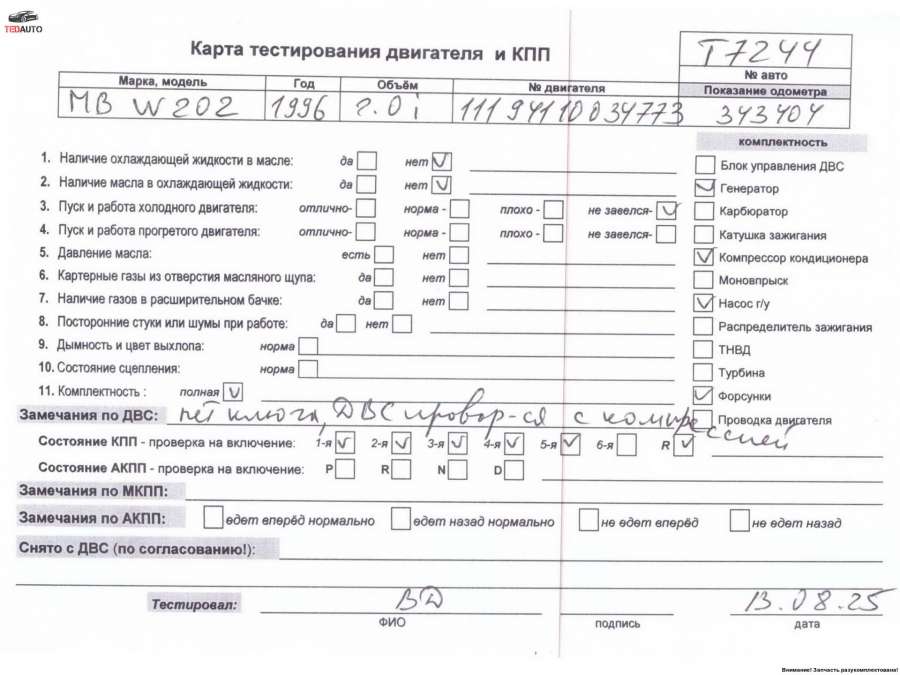 TEDAUTO
Карта тестирования двигателя и КПП
T7244
№ авто
Марка, модель Год Объём № двигателя Показание одометра
MB W202 1996 2.0i 111 941 10 034773 343404
комплектность
1. Наличие охлаждающей жидкости в масле: да нет V
Блок управления ДВС
2. Наличие масла в охлаждающей жидкости: да нет V
Генератор V
3. Пуск и работа холодного двигателя: отлично- норма - плохо - не завелся- V
Карбюратор
4. Пуск и работа прогретого двигателя: отлично- норма - плохо - не завелся-
Катушка зажигания
5. Давление масла: есть нет
Компрессор кондиционера V
6. Картерные газы из отверстия масляного щупа: да нет
Моновпрыск
7. Наличие газов в расширительном бачке: да нет
Насос г/у V
8. Посторонние стуки или шумы при работе: да нет
Распределитель зажигания
9. Дымность и цвет выхлопа: норма
ТНВД
10. Состояние сцепления: норма
Турбина
11. Комплектность : полная V
Форсунки V
Замечания по ДВС: нет ключа, ДВС провор-ся с компрессией
Проводка двигателя
Состояние КПП - проверка на включение: 1-я V 2-я V 3-я V 4-я V 5-я V 6-я R V
Состояние АКПП - проверка на включение: P R N D
Замечания по МКПП:
Замечания по АКПП: едет вперёд нормально едет назад нормально не едет вперёд не едет назад
Снято с ДВС (по согласованию!):
Тестировал: ВД 13.08.25
ФИО подпись дата
Внимание! Запчасть разукомплектована!